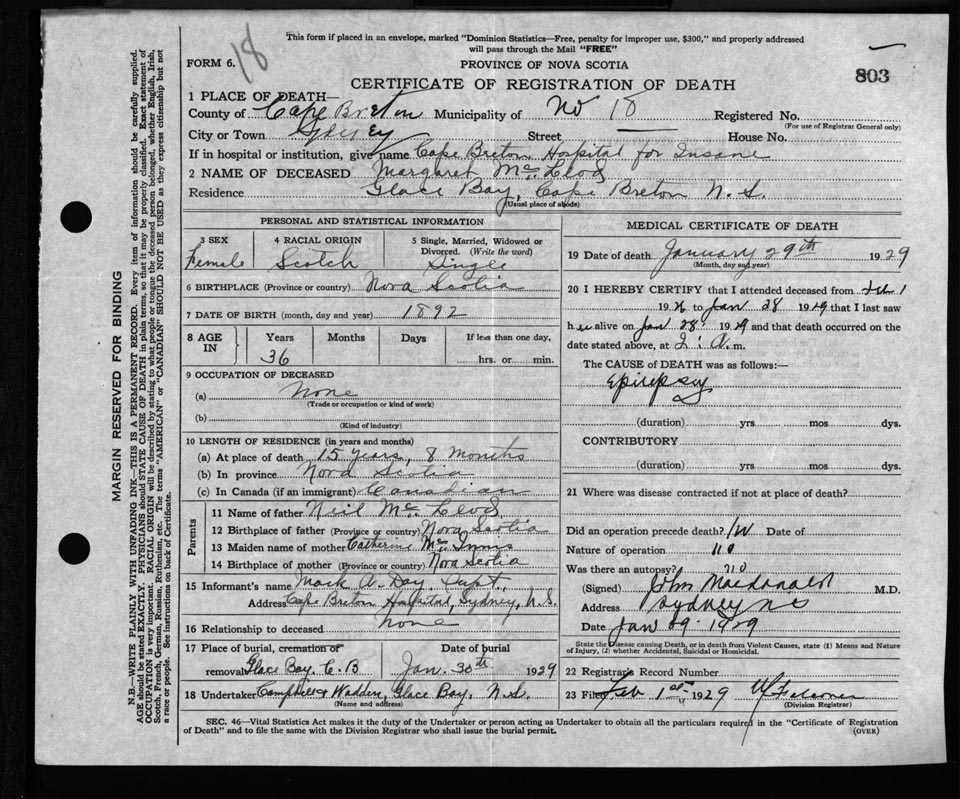 This form if placed in an envelope, marked "Dominion Statistics—Free, penalty for improper use, $300," and properly addressed
will pass through the Mail "FREE"
FORM 6.
18
PROVINCE OF NOVA SCOTIA
CERTIFICATE OF REGISTRATION OF DEATH
803
1 PLACE OF DEATH—
County of Cape Breton Municipality of No 18 Registered No.
(For use of Registrar General only)
City or Town Sydney Street House No.
If in hospital or institution, give name Cape Breton Hospital for Insane
2 NAME OF DECEASED Margaret McLeod
Residence Glace Bay, Cape Breton N.S.
(Usual place of abode)
PERSONAL AND STATISTICAL INFORMATION
3 SEX Female
4 RACIAL ORIGIN Scotch
5 Single, Married, Widowed or Divorced. (Write the word) Single
6 BIRTHPLACE (Province or country) Nova Scotia
7 DATE OF BIRTH (month, day and year) 1892
8 AGE IN Years Months Days If less than one day,
36 hrs. or min.
9 OCCUPATION OF DECEASED
(a) None
(Trade or occupation or kind of work)
(b)
(Kind of industry)
10 LENGTH OF RESIDENCE (in years and months)
(a) At place of death 15 years, 8 months
(b) In province Nova Scotia
(c) In Canada (if an immigrant) Canadian
Parents
11 Name of father Neil McLeod
12 Birthplace of father (Province or country) Nova Scotia
13 Maiden name of mother Catherine McInnis
14 Birthplace of mother (Province or country) Nova Scotia
15 Informant's name Mack A. Day Supt.
Address Cape Breton Hospital, Sydney, N.S.
16 Relationship to deceased None
17 Place of burial, cremation or removal Glace Bay. C.B
Date of burial Jan. 30th 1929
18 Undertaker Campbell & Wadden, Glace Bay. N.S.
(Name and address)
MEDICAL CERTIFICATE OF DEATH
19 Date of death January 29th 1929
(Month, day and year)
20 I HEREBY CERTIFY that I attended deceased from Feb 1
19 to Jan 28 1929 that I last saw
h er alive on Jan 28 1929 and that death occurred on the
date stated above, at A. m.
The CAUSE OF DEATH was as follows:—
Epilepsy
(duration) yrs mos dys.
CONTRIBUTORY
(duration) yrs. mos. dys.
21 Where was disease contracted if not at place of death?
Did an operation precede death? Date of
Nature of operation no
Was there an autopsy? no
(Signed) John Macdonald M.D.
Address Sydney NS
Date Jan 29-1929
State the Disease causing Death, or in death from Violent Causes, state (1) Means and Nature
of Injury, (2) whether Accidental, Suicidal or Homicidal.
22 Registrar's Record Number
23 Filed Feb 1st 1929
(Division Registrar)
SEC. 46—Vital Statistics Act makes it the duty of the Undertaker or person acting as Undertaker to obtain all the particulars required in the "Certificate of Registration
of Death" and to file the same with the Division Registrar who shall issue the burial permit.
(OVER)
MARGIN RESERVED FOR BINDING
N.B.—WRITE PLAINLY WITH UNFADING INK—THIS IS A PERMANENT RECORD. Every item of information should be carefully supplied.
AGE should be stated EXACTLY. PHYSICIANS should STATE CAUSE OF DEATH in plain terms, so that it may be properly classified. Exact statement of
OCCUPATION is very important. RACIAL ORIGIN will be described by stating to what people or tongue the deceased person belonged, whether English, Irish,
Scotch, French, German, Russian, Ruthenian, etc. The terms "AMERICAN" or "CANADIAN" SHOULD NOT BE USED as they express citizenship but not
a race or people. See instructions on back of Certificate.